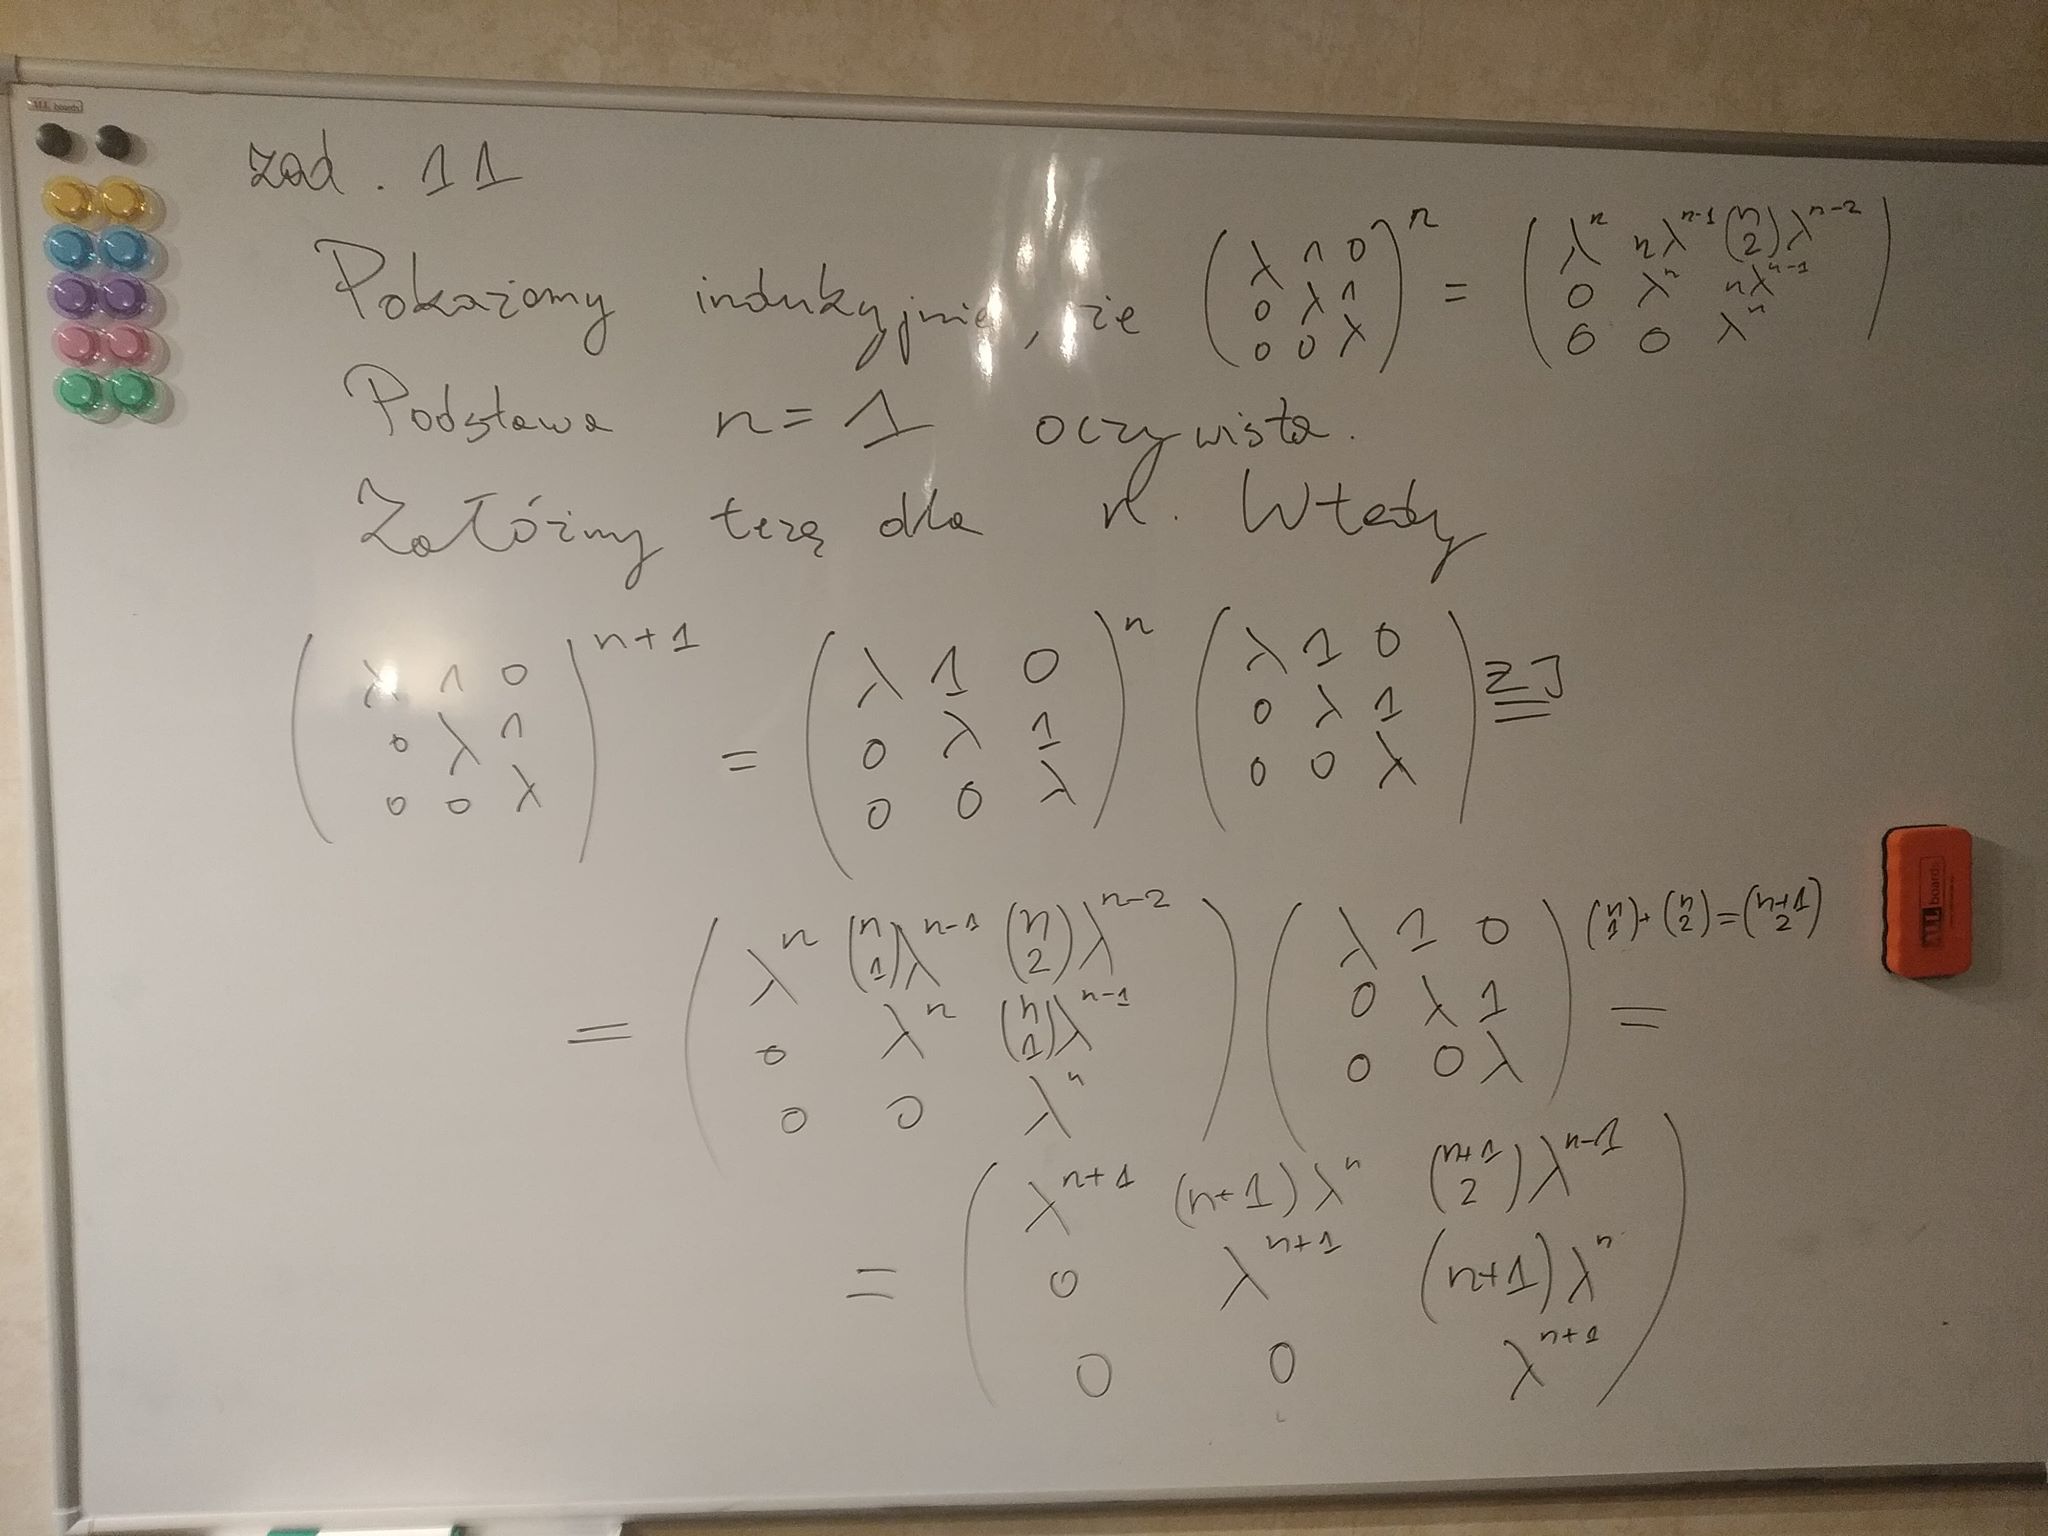 ALL boards
zad. 11
Pokażemy indukcyjnie, że (λ 1 0; 0 λ 1; 0 0 λ)^n = (λ^n nλ^{n-1} (n 2)λ^{n-2}; 0 λ^n nλ^{n-1}; 0 0 λ^n)
Podstawa n=1 oczywista.
Załóżmy tezę dla n. Wtedy
(λ 1 0; 0 λ 1; 0 0 λ)^{n+1} = (λ 1 0; 0 λ 1; 0 0 λ)^n (λ 1 0; 0 λ 1; 0 0 λ) ZI=
= (λ^n (n 1)λ^{n-1} (n 2)λ^{n-2}; 0 λ^n (n 1)λ^{n-1}; 0 0 λ^n) (λ 1 0; 0 λ 1; 0 0 λ) (n 1)+(n 2)=(n+1 2) =
= (λ^{n+1} (n+1)λ^n (n+1 2)λ^{n-1}; 0 λ^{n+1} (n+1)λ^n; 0 0 λ^{n+1})
ALL boards